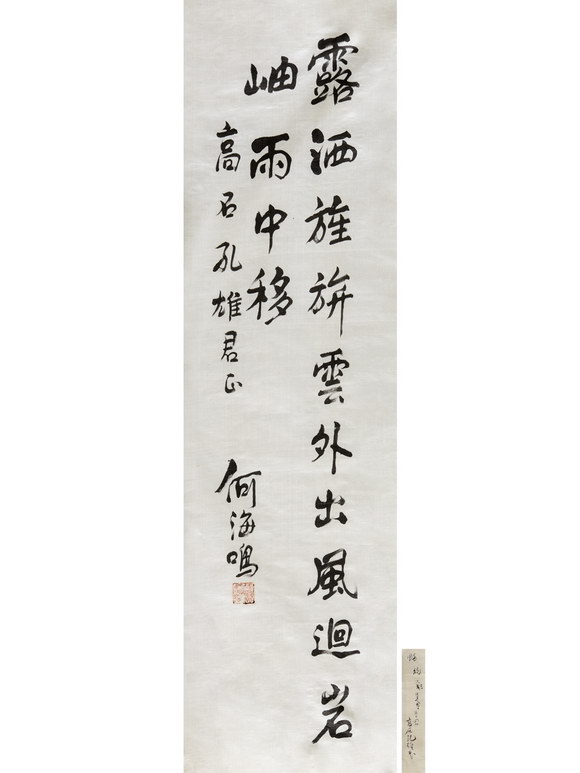 露洒旌旃雲外出風迴岩
岫雨中移
高石孔雄君正
何海鳴